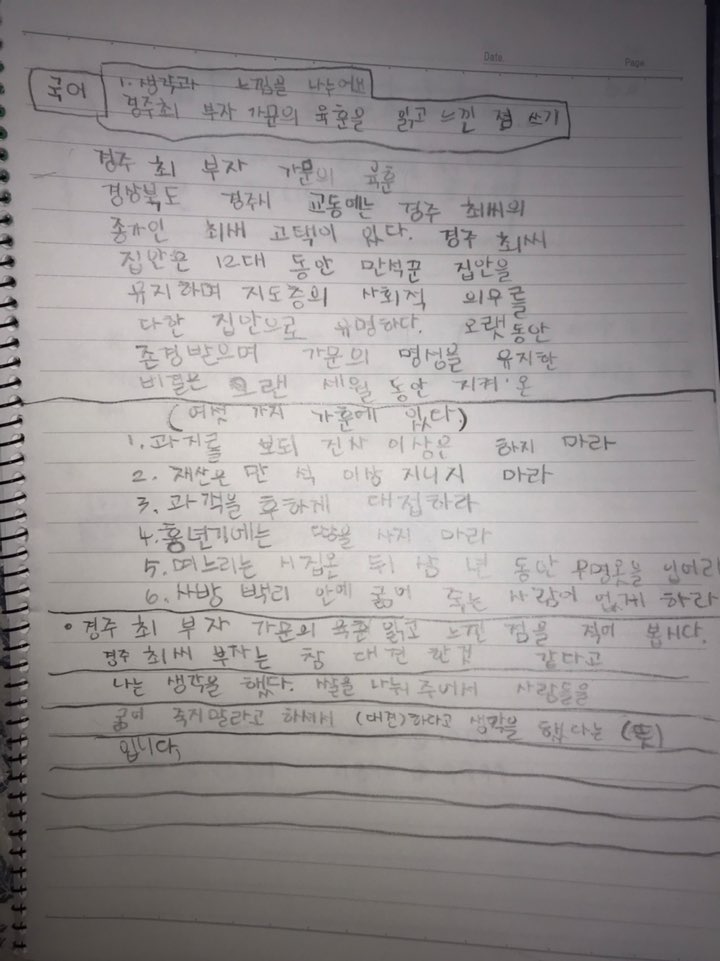 Date. Page
국어 1. 생각과 느낌을 나누어요
경주 최 부자 가문의 육훈을 읽고 느낀 점 쓰기
경주 최 부자 가문의 육훈
경상북도 경주시 교동에는 경주 최씨의
종가인 최씨 고택이 있다. 경주 최씨
집안은 12대 동안 만석꾼 집안을
유지하며 지도층의 사회적 의무를
다한 집안으로 유명하다. 오랫동안
존경받으며 가문의 명성을 유지한
비결은 오랜 세월 동안 지켜 온
(여섯 가지 가훈에 있다.)
1. 과거를 보되 진사 이상은 하지 마라
2. 재산은 만 석 이상 지니지 마라
3. 과객을 후하게 대접하라
4. 흉년기에는 땅을 사지 마라
5. 며느리는 시집온 뒤 삼 년 동안 무명옷을 입어라
6. 사방 백리 안에 굶어 죽는 사람이 없게 하라
• 경주 최 부자 가문의 육훈 읽고 느낀 점을 적어 봅시다.
경주 최씨 부자는 참 대견 한것 같다고
나는 생각을 했다. 쌀을 나눠 주어서 사람들을
굶어 죽지말라고 하셔서 (대견)하다고 생각을 했다는 (뜻)
입니다,